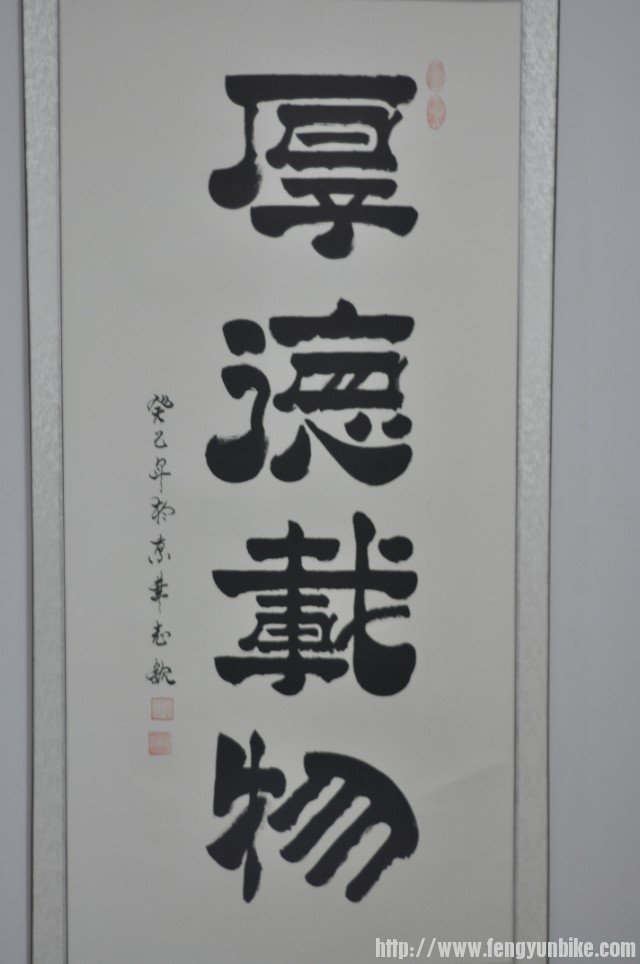 厚德載物
癸巳年於京華志敏
http://www.fengyunbike.com